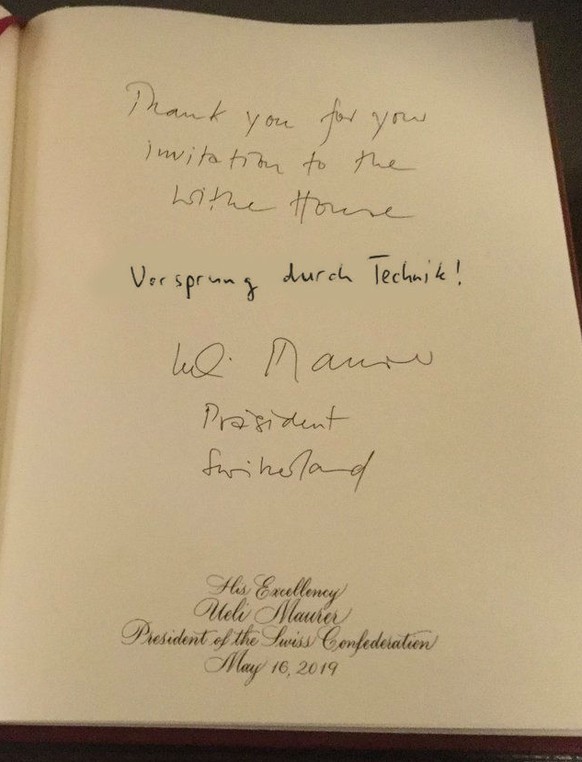 Thank you for your
invitation to the
Withe House
Vorsprung durch Technik!
Ueli Maurer
Präsident
Switzerland
His Excellency
Ueli Maurer
President of the Swiss Confederation
May 16, 2019